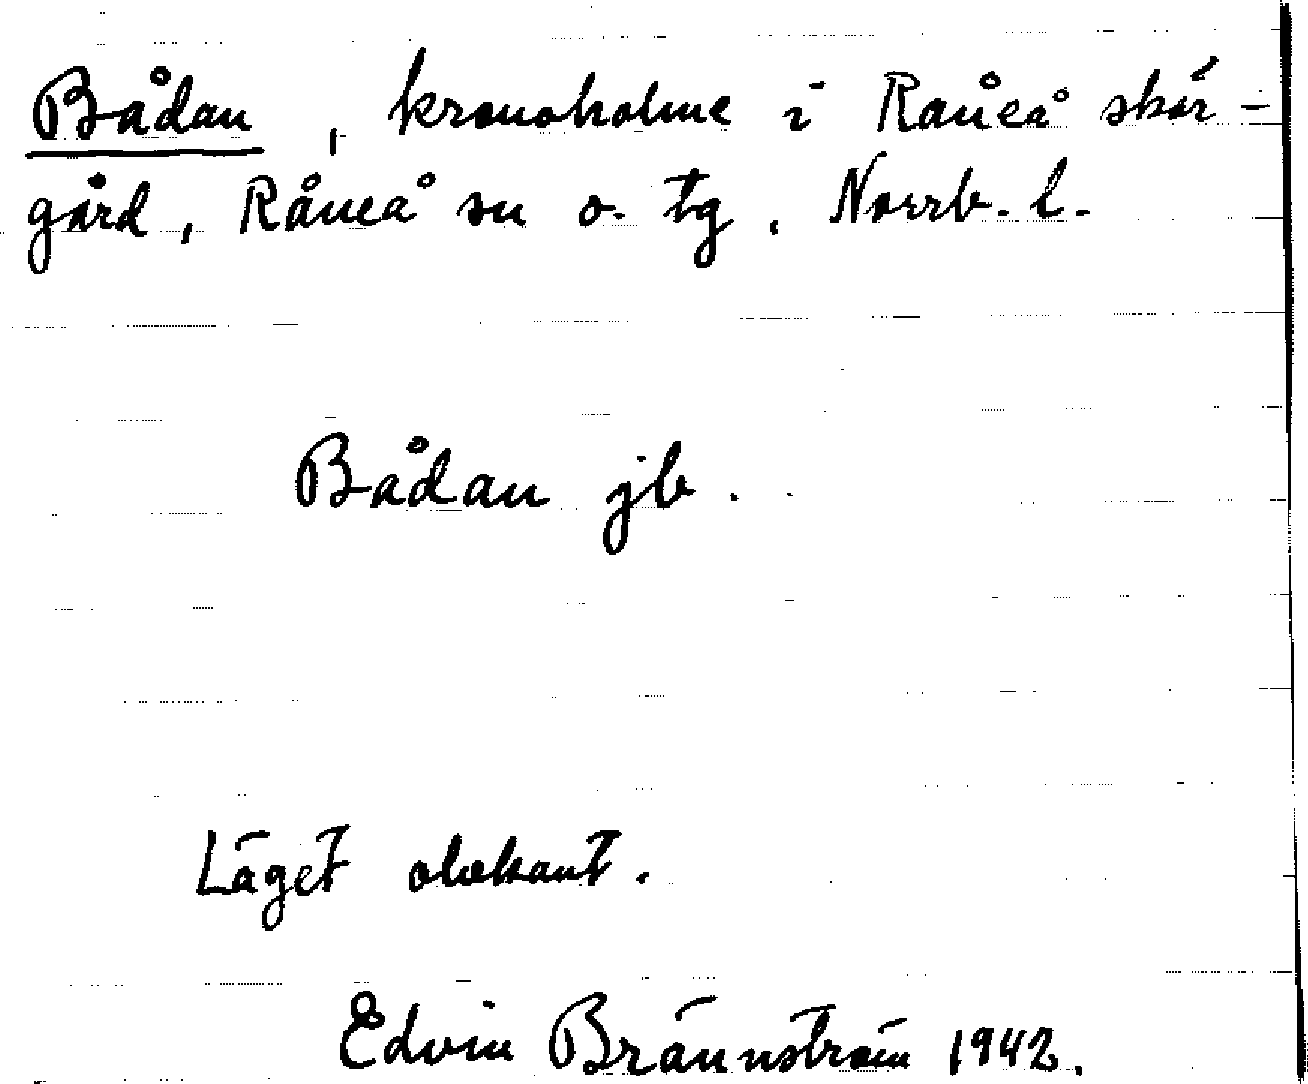 Bådan, kronoholme i Råneå skär-
gård, Råneå sn o. tg. Norrb. l.
Bådan jb.
Läget obekant.
Edvin Brännström 1942.